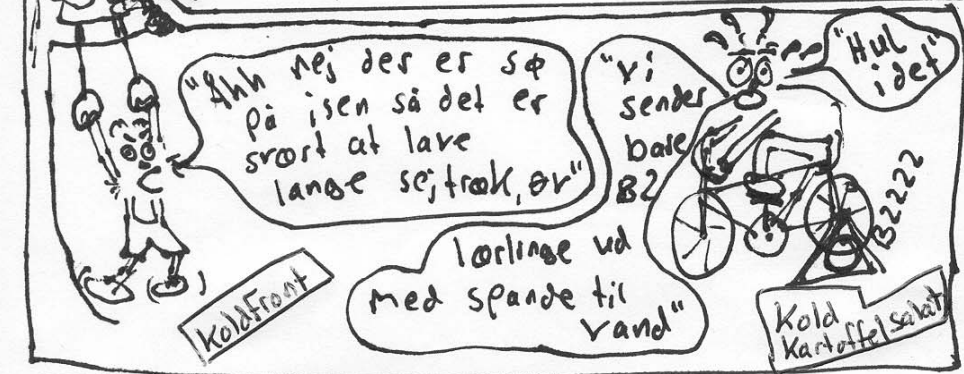 "Åhh nej der er sø
på isen så det er
svært at lave
lange sejtræk, øv"
Koldfront
"Vi
sender
bare
B2
lærlinge ud
med spande til
vand"
"Hul
i det"
BZZZZ
Kold
Kartoffelsalat